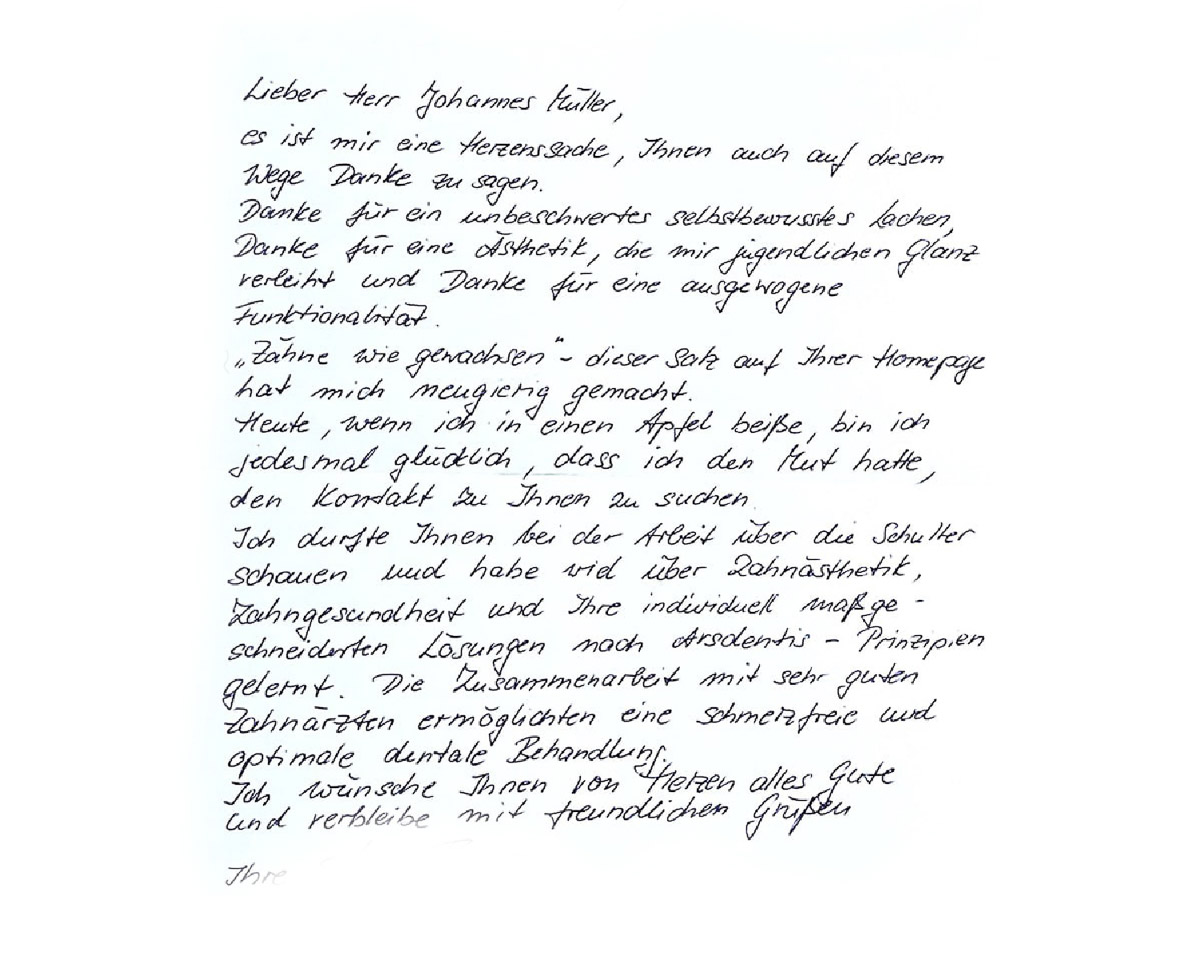 Lieber Herr Johannes Müller,
es ist mir eine Herzenssache, Ihnen auch auf diesem
Wege Danke zu sagen.
Danke für ein unbeschwertes selbstbewusstes Lachen,
Danke für eine Ästhetik, die mir jugendlichen Glanz
verleiht und Danke für eine ausgewogene
Funktionalität.
„Zähne wie gewachsen" – dieser Satz auf Ihrer Homepage
hat mich neugierig gemacht.
Heute, wenn ich in einen Apfel beiße, bin ich
jedesmal glücklich, dass ich den Mut hatte,
den Kontakt zu Ihnen zu suchen.
Ich durfte Ihnen bei der Arbeit über die Schulter
schauen und habe viel über Zahnästhetik,
Zahngesundheit und Ihre individuell maßge-
schneiderten Lösungen nach Arsdentis – Prinzipien
gelernt. Die Zusammenarbeit mit sehr guten
Zahnärzten ermöglichten eine schmerzfreie und
optimale dentale Behandlung.
Ich wünsche Ihnen von Herzen alles Gute
und verbleibe mit freundlichen Grüßen
Ihre